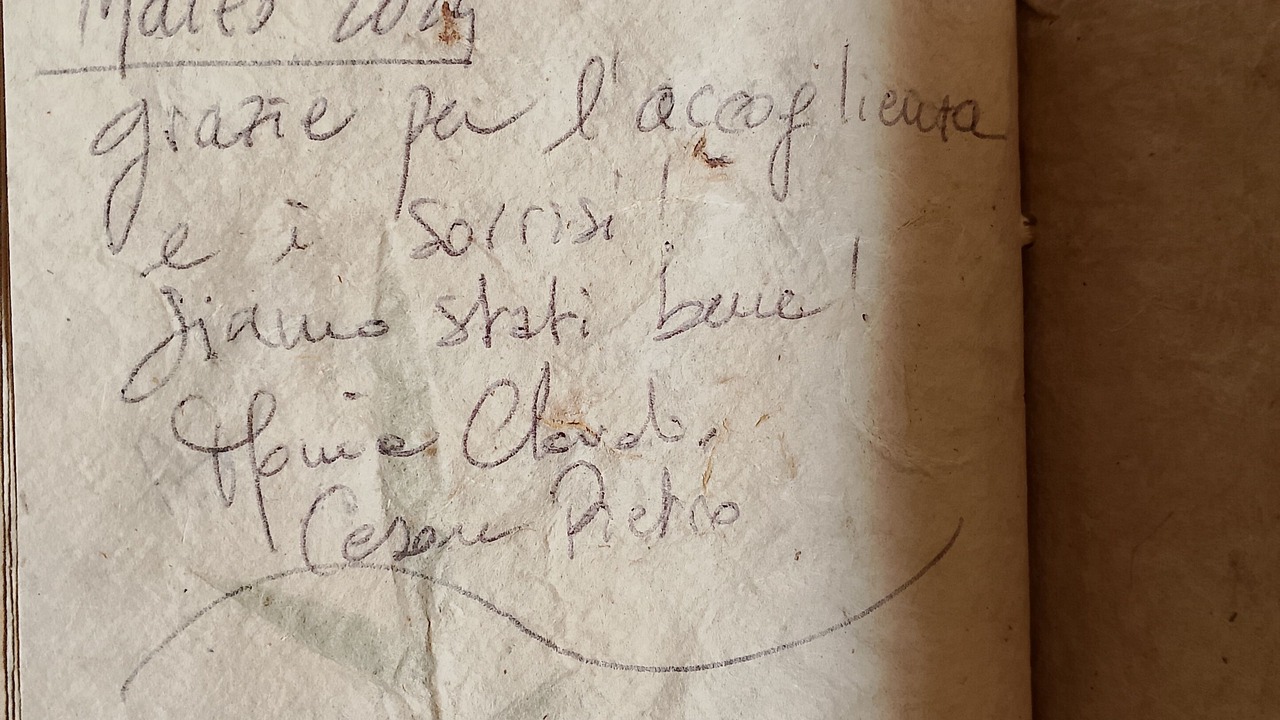 Marzo
grazie per l'accoglienza
e i sorrisi!
siamo stati bene!
Monica Claudo,
Cesare Pietro